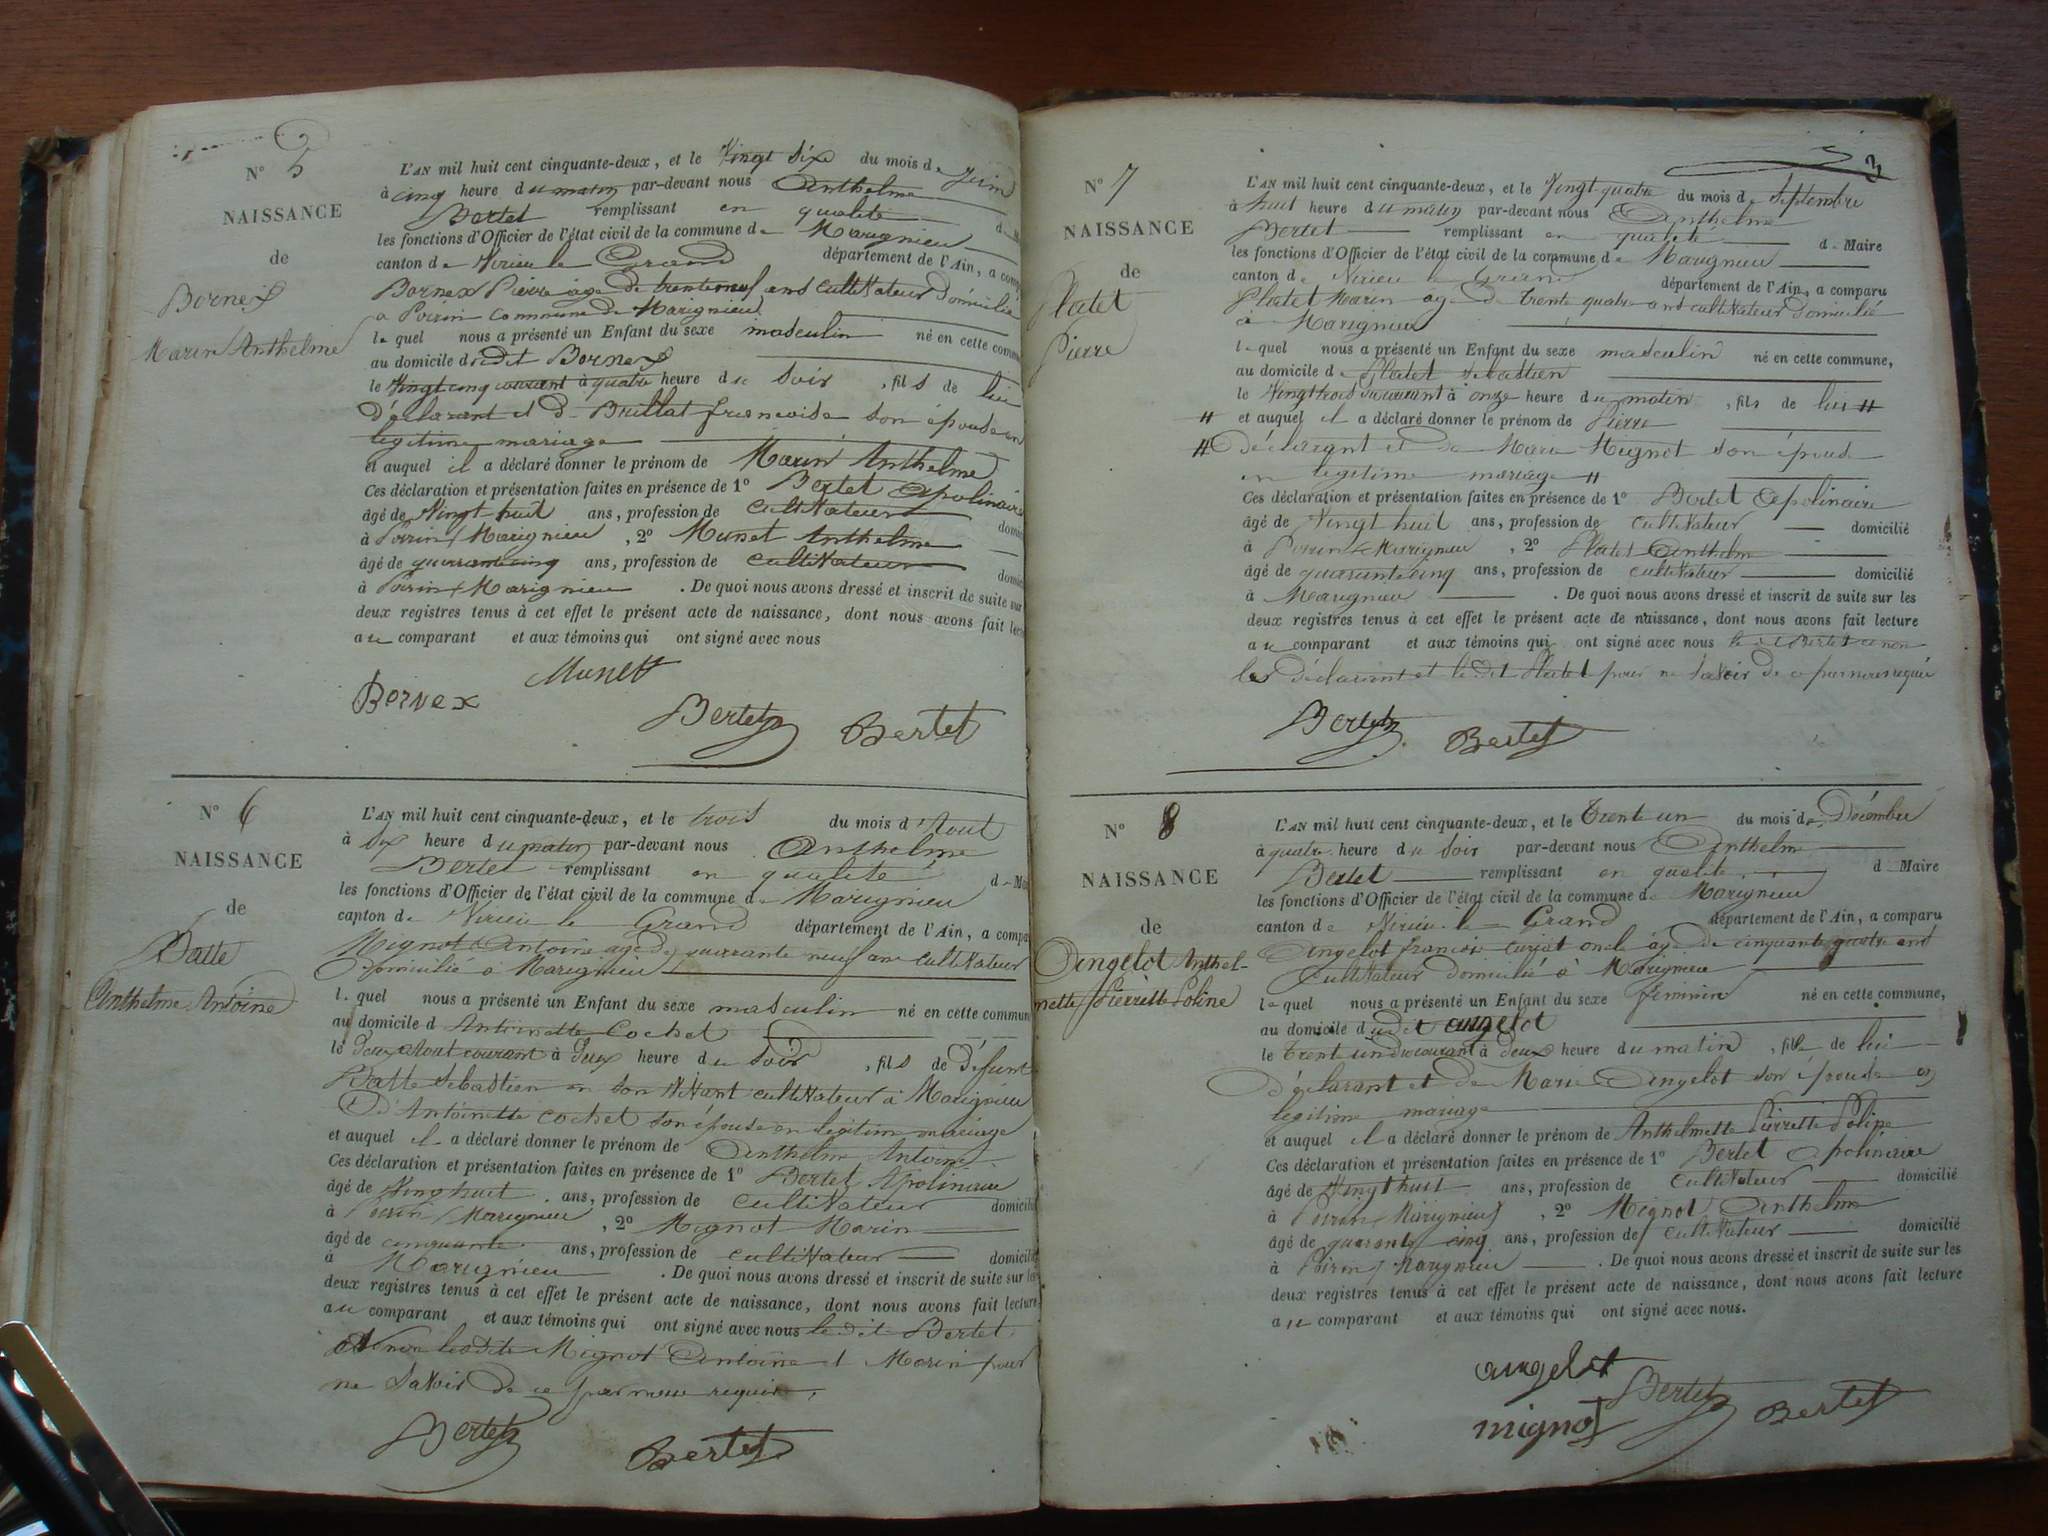 N° 5
NAISSANCE
de
Bornex
Marin Anthelme
L'AN mil huit cent cinquante-deux, et le Vingt Six du mois de Juin
à cinq heure du matin par-devant nous Anthelme
Bertet remplissant en qualité d
les fonctions d'Officier de l'état civil de la commune de Marignieu
canton de Virieu le Grand département de l'Ain, a comp
Bornex Pierre age de trente neuf ans cultivateur domicilié
a Poirin Commune de Marignieu
le quel nous a présenté un Enfant du sexe masculin né en cette commu
au domicile dudit Bornex
le Vingt cinq courant à quatre heure du Soir , fils de lui
déclarant et d Brillat francoise son épouse en
legitime mariage
et auquel il a déclaré donner le prénom de Marin Anthelme
Ces déclaration et présentation faites en présence de 1° Bertet Apolinaire
âgé de Vingt huit ans, profession de cultivateur domic
à Poirin Marignieu , 2° Munet Anthelme
âgé de quarante cinq ans, profession de cultivateur domici
à Poirin Marignieu . De quoi nous avons dressé et inscrit de suite sur
deux registres tenus à cet effet le présent acte de naissance, dont nous avons fait lect
au comparant et aux témoins qui ont signé avec nous
Munet
Bornex Bertet Bertet
N° 6
NAISSANCE
de
Batte
Anthelme Antoine
L'AN mil huit cent cinquante-deux, et le trois du mois d'Aout
à dix heure du matin par-devant nous Anthelme
Bertet remplissant en qualité de Ma
les fonctions d'Officier de l'état civil de la commune de Marignieu
canton de Virieu le Grand département de l'Ain, a compa
Mignot Antoine age de quarante neuf ans cultivateur
domicilié a Marignieu
le quel nous a présenté un Enfant du sexe masculin né en cette commun
au domicile d Antoinette Cochet
le deux Aout courant à deux heure du Soir , fils de défunt
Batte Sebastien en son Vivant cultivateur a Marignieu
& d'Antoinette cochet son épouse en legitime mariage
et auquel il a déclaré donner le prénom de Anthelme Antoine
Ces déclaration et présentation faites en présence de 1° Bertet Apolinaire
âgé de Vingt huit ans, profession de cultivateur domicilié
à Poirin Marignieu , 2° Mignot Marin
âgé de cinquante ans, profession de cultivateur domicilié
à Marignieu . De quoi nous avons dressé et inscrit de suite sur les
deux registres tenus à cet effet le présent acte de naissance, dont nous avons fait lecture
au comparant et aux témoins qui ont signé avec nous le dit Bertet
et non lesdits Mignot Antoine et Marin pour
ne Savoir de ce par nous requis
Bertet Bertet
3
N° 7
NAISSANCE
de
Platet
Pierre
L'AN mil huit cent cinquante-deux, et le Vingt quatre du mois de Septembre
à huit heure du matin par-devant nous Anthelme
Bertet remplissant en qualité de Maire
les fonctions d'Officier de l'état civil de la commune de Marignieu
canton de Virieu le Grand département de l'Ain, a comparu
Platet Marin age de trente quatre ans cultivateur domicilié
à Marignieu
le quel nous a présenté un Enfant du sexe masculin né en cette commune,
au domicile de Platet Sebastien
le Vingt trois du courant à onze heure du matin , fils de lui #
# et auquel il a déclaré donner le prénom de Pierre
# Déclarant et de Marie Mignot son épouse
en legitime mariage #
Ces déclaration et présentation faites en présence de 1° Bertet Apolinaire
âgé de Vingt huit ans, profession de cultivateur domicilié
à Poirin Marignieu , 2° Platet Anthelme
âgé de quarante cinq ans, profession de cultivateur domicilié
à Marignieu . De quoi nous avons dressé et inscrit de suite sur les
deux registres tenus à cet effet le présent acte de naissance, dont nous avons fait lecture
au comparant et aux témoins qui ont signé avec nous le dit Bertet et non
les déclarant et le dit Platet pour ne Savoir de ce par nous requis
Bertet Bertet
N° 8
NAISSANCE
de
Angelot Anthel-
mette Pierrette Poline
L'AN mil huit cent cinquante-deux, et le trente un du mois de Décembre
à quatre heure du Soir par-devant nous Anthelme
Bertet remplissant en qualité de Maire
les fonctions d'Officier de l'état civil de la commune de Marignieu
canton de Virieu le Grand département de l'Ain, a comparu
Angelot francois âgé de cinquante quatre ans
cultivateur domicilié à Marignieu
le quel nous a présenté un Enfant du sexe feminin né en cette commune,
au domicile dudit angelot
le trente un du courant à deux heure du matin , fille de lui
déclarant et de Marie Angelot son épouse en
legitime mariage
et auquel il a déclaré donner le prénom de Anthelmette Pierrette Poline
Ces déclaration et présentation faites en présence de 1° Bertet Apolinaire
âgé de Vingt huit ans, profession de cultivateur domicilié
à Poirin Marignieu , 2° Mignot Anthelme
âgé de quarante cinq ans, profession de cultivateur domicilié
à Poirin Marignieu . De quoi nous avons dressé et inscrit de suite sur les
deux registres tenus à cet effet le présent acte de naissance, dont nous avons fait lecture
au comparant et aux témoins qui ont signé avec nous.
angelot Bertet Bertet
mignot